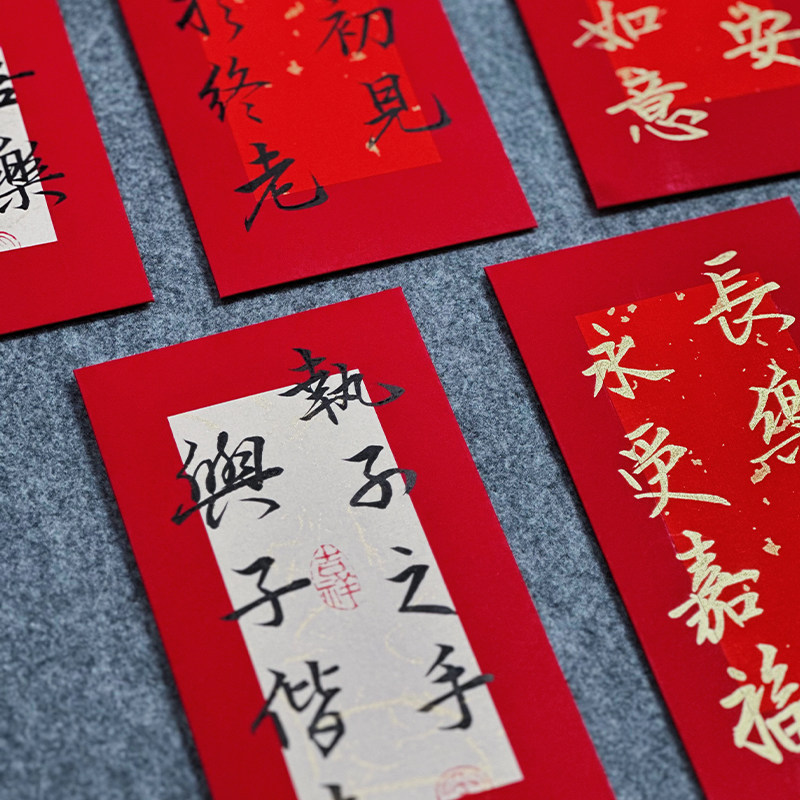 樂
初見
終老
安
如意
執子之手
與子偕
吉祥
長樂
永受嘉福